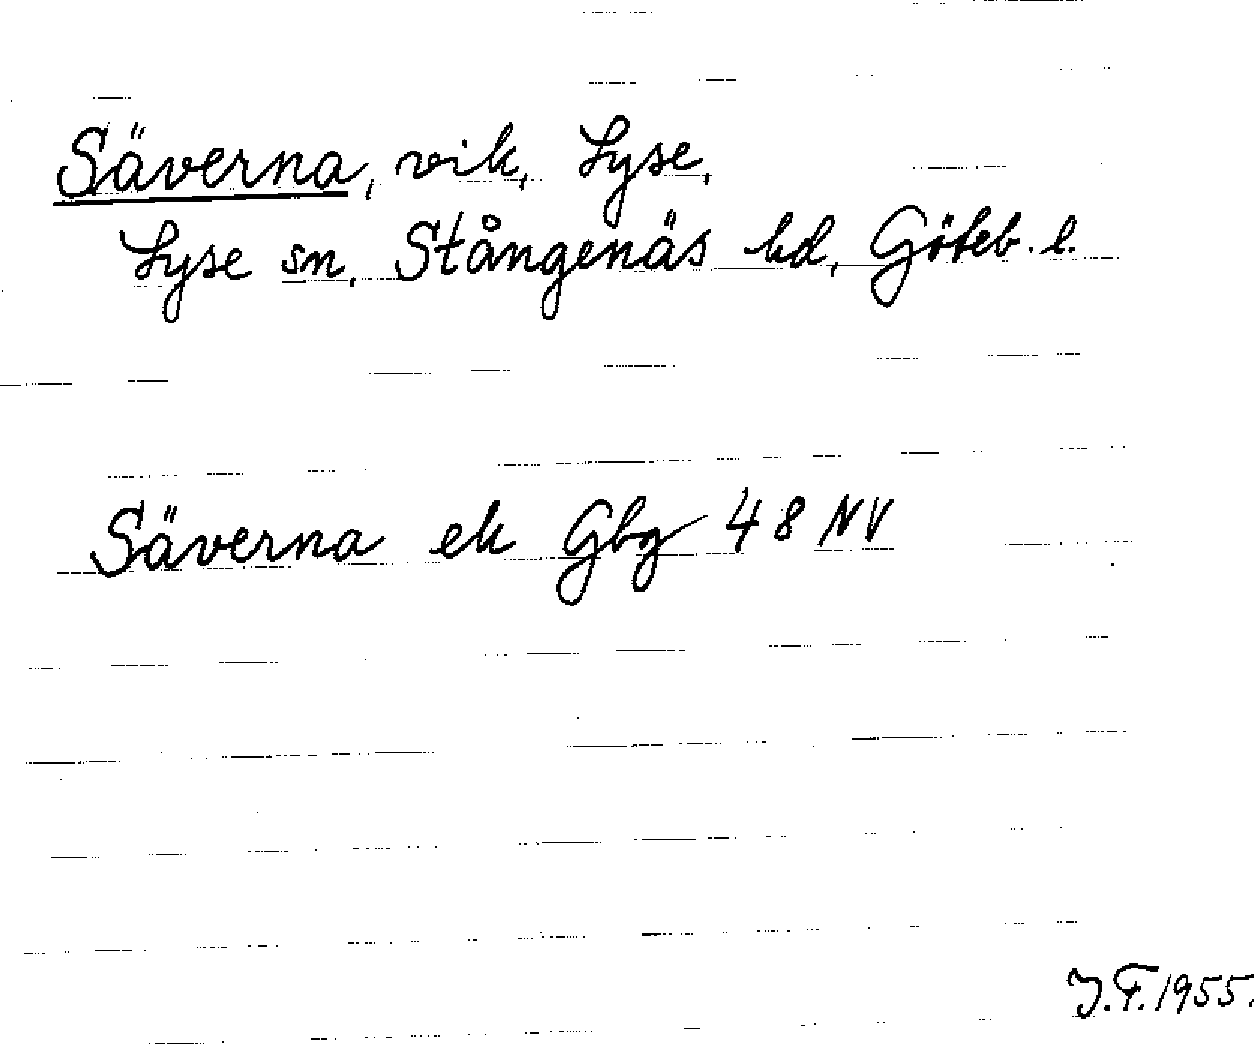 Säverna, vik, Lyse,
Lyse sn, Stångenäs hd, Göteb. l.
Säverna ek Gbg 48 NV
J.F. 1955.